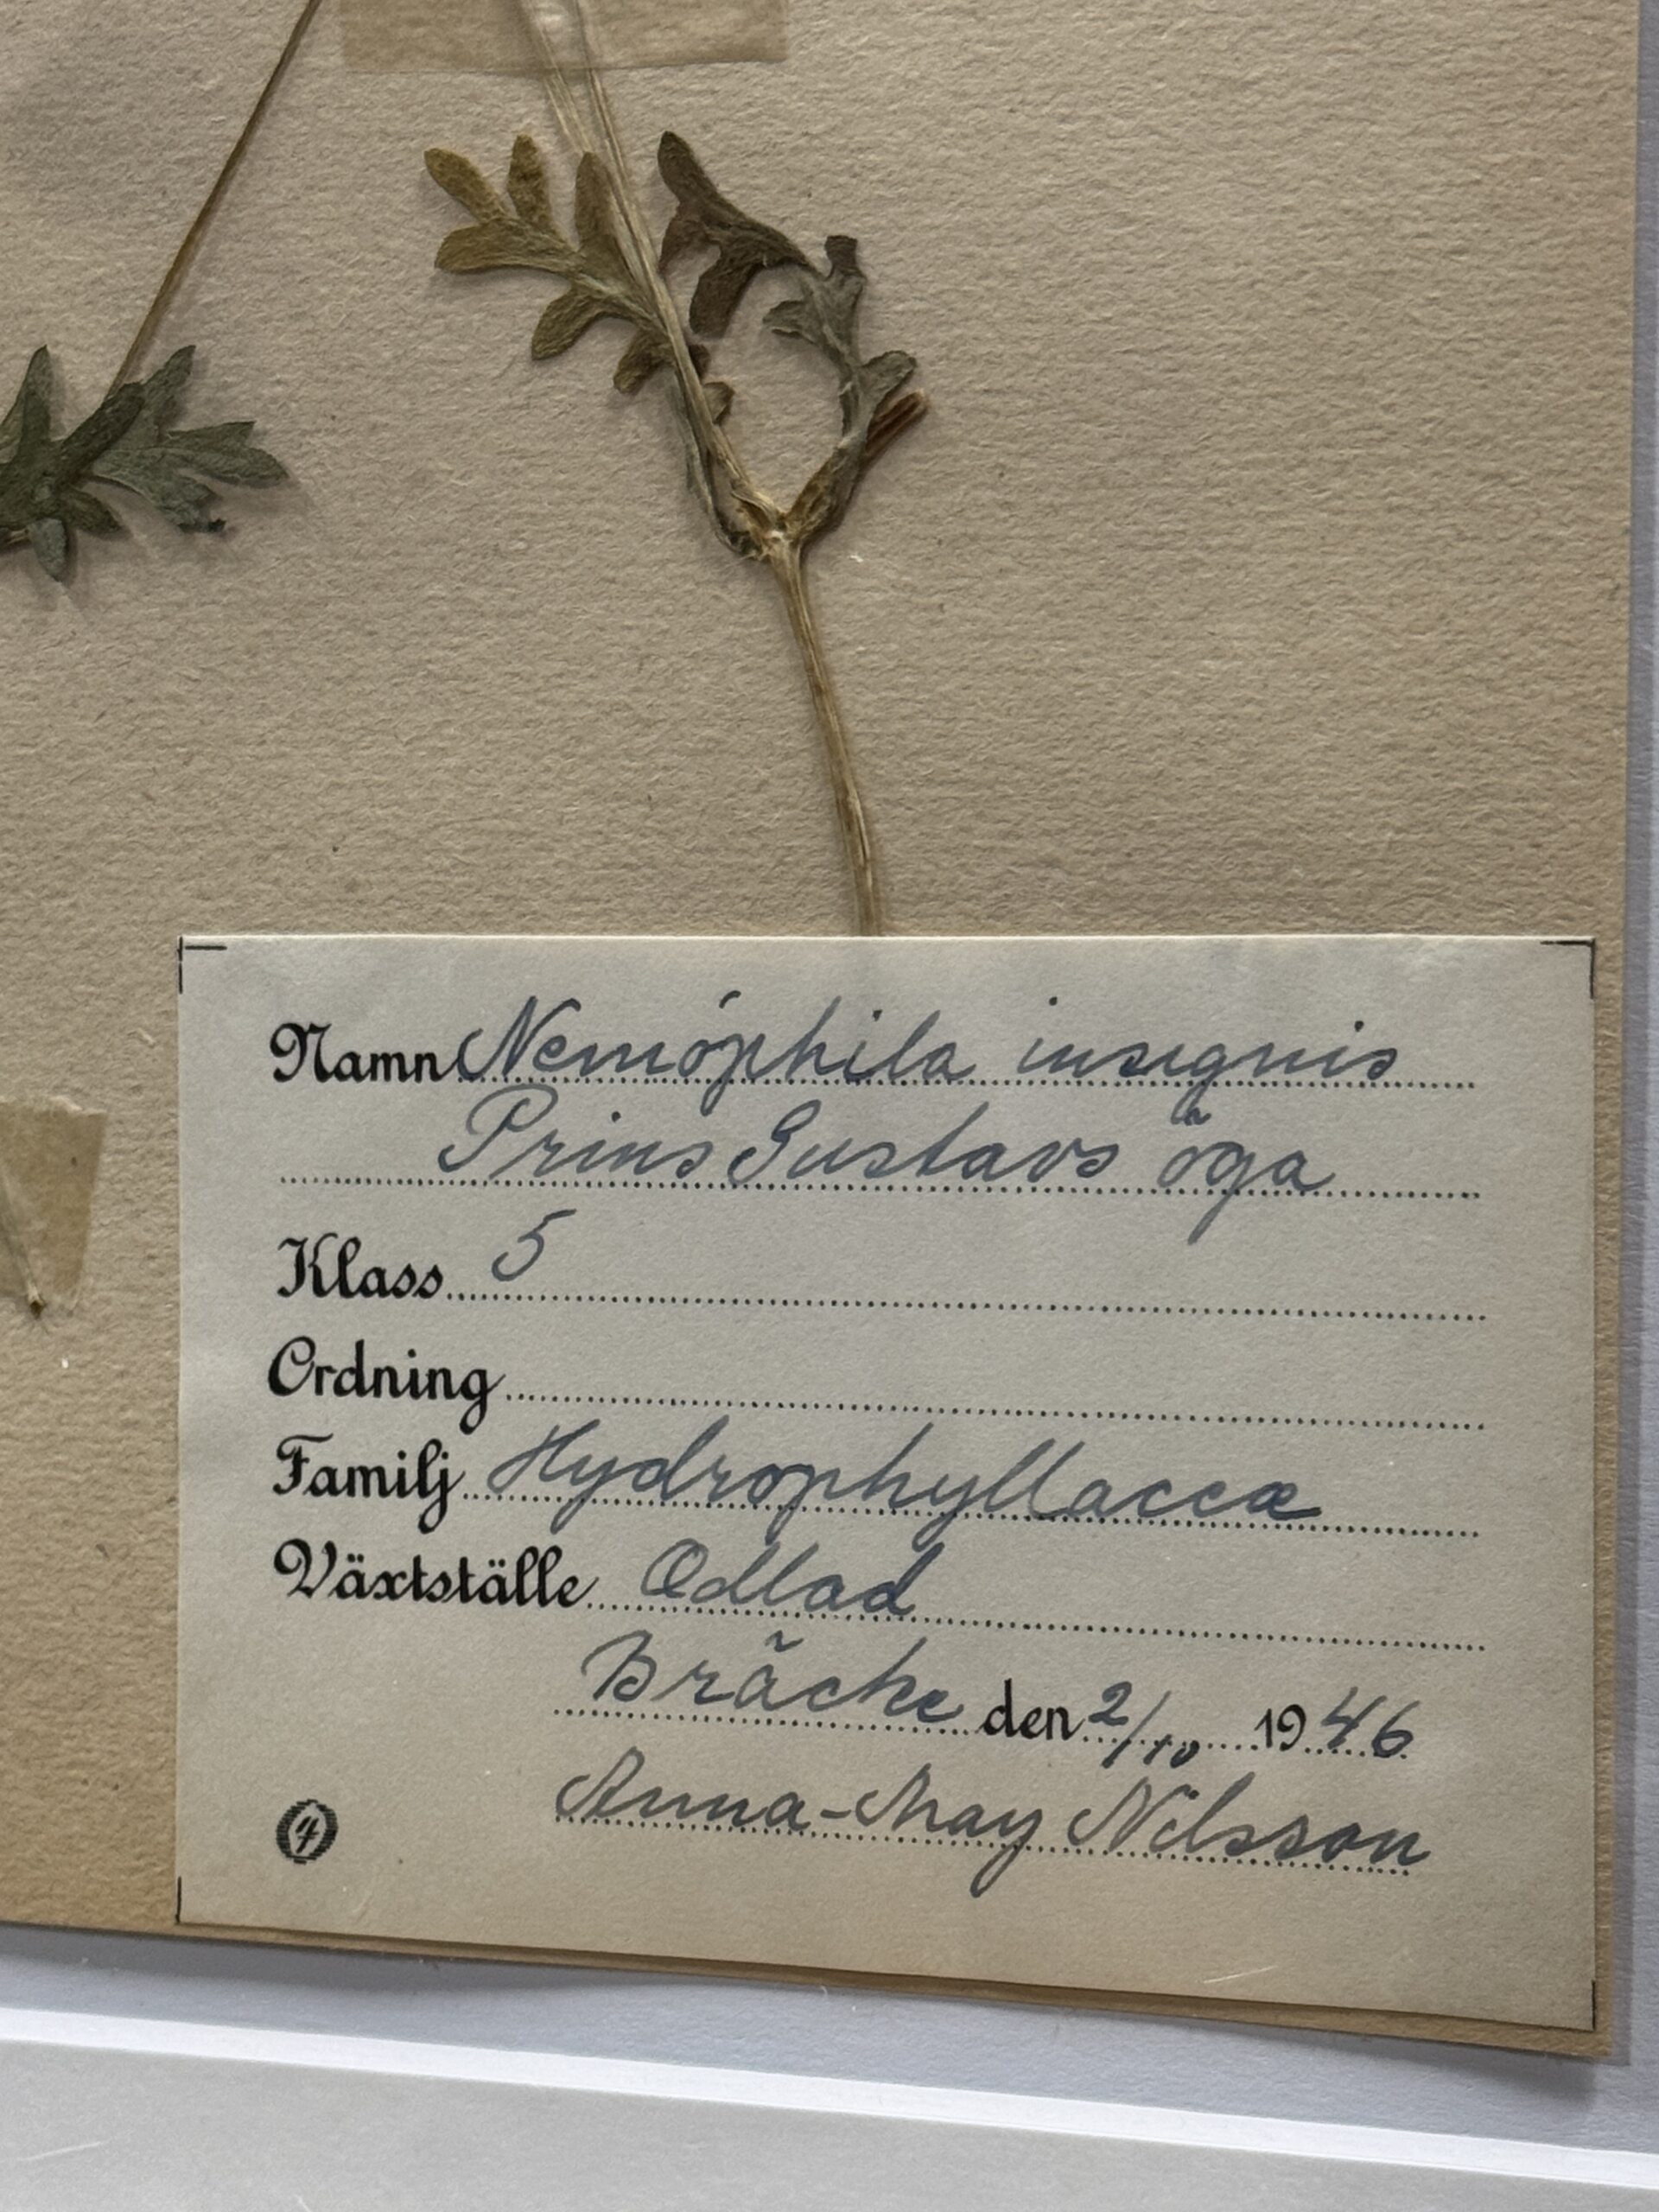 Namn Nemóphila insignis
Prins Gustavs öga
Klass 5
Ordning
Familj Hydrophyllaceæ
Växtställe Odlad
Bräcke den 2/10 1946
Anna-May Nilsson
4